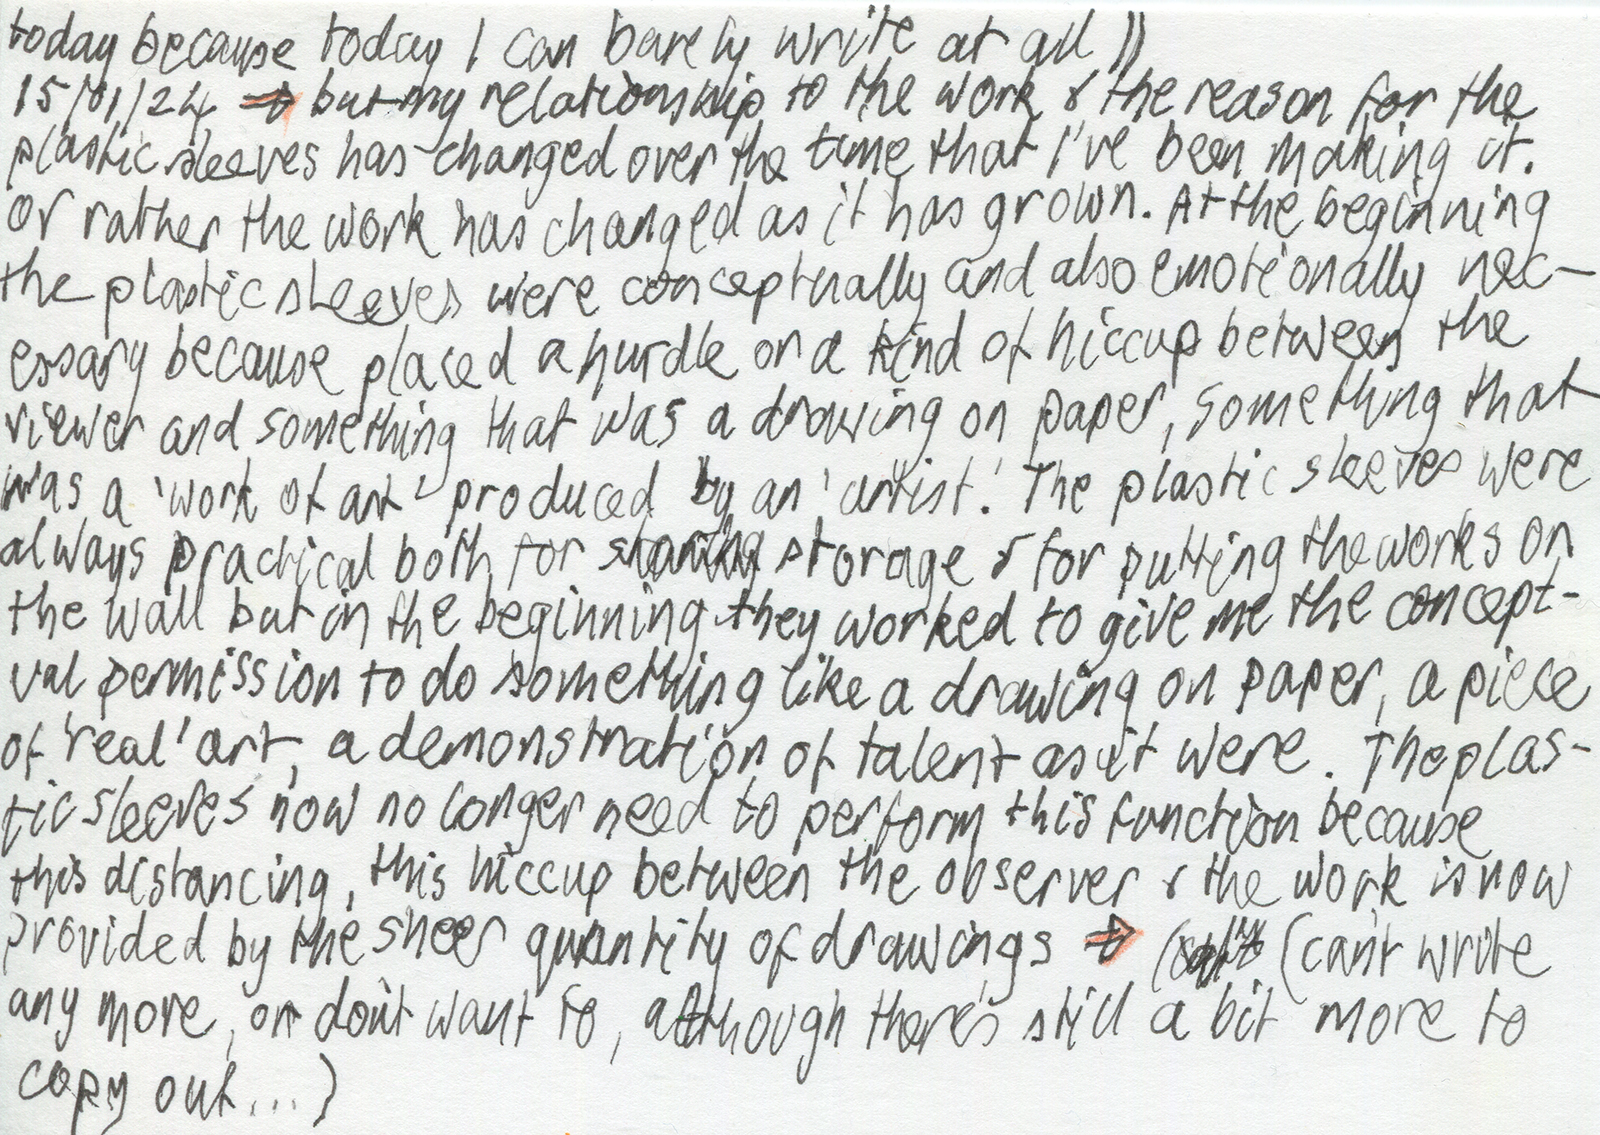 today because today I can barely write at all))
15/01/24 → but my relationship to the work & the reason for the
plastic sleeves has changed over the time that I've been making it.
Or rather the work has changed as it has grown. At the beginning
the plastic sleeves were conceptually and also emotionally nec-
essary because placed a hurdle or a kind of hiccup between the
viewer and something that was a drawing on paper, something that
was a 'work of art' produced by an 'artist.' The plastic sleeves were
always practical both for storage & for putting the works on
the wall but in the beginning they worked to give me the concept-
ual permission to do something like a drawing on paper, a piece
of 'real' art, a demonstration of talent as it were. The plas-
tic sleeves now no longer need to perform this function because
this distancing, this hiccup between the observer & the work is now
provided by the sheer quantity of drawings → (can't write
any more, or don't want to, although there's still a bit more to
copy out...)